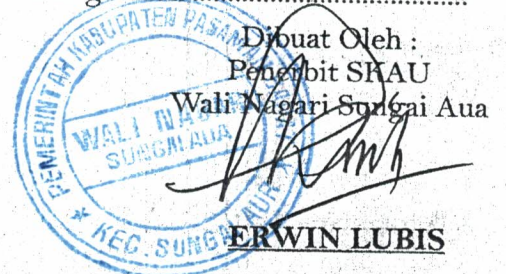 Dibuat Oleh :
Penerbit SKAU
Wali Nagari Sungai Aua
PEMERINTAH KABUPATEN PASAMAN
WALI NAGARI
SUNGAI AUA
KEC. SUNGAI AUR
ERWIN LUBIS